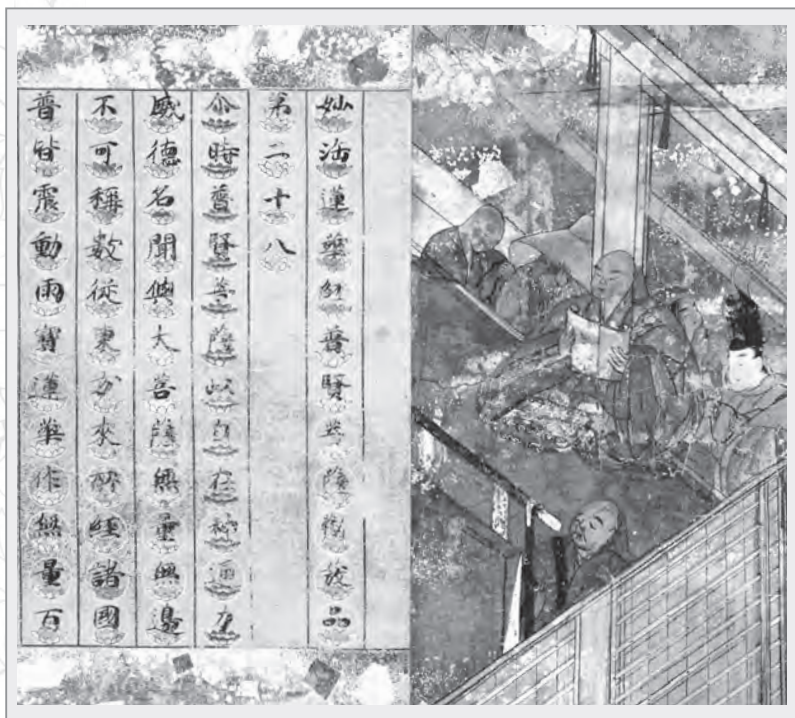 妙法蓮華經普賢菩薩勸發品
第二十八
尒時普賢菩薩以自在神通力
威德名聞與大菩薩無量無邊
不可稱數從東方來所經諸國
普皆震動雨寶蓮華作無量百